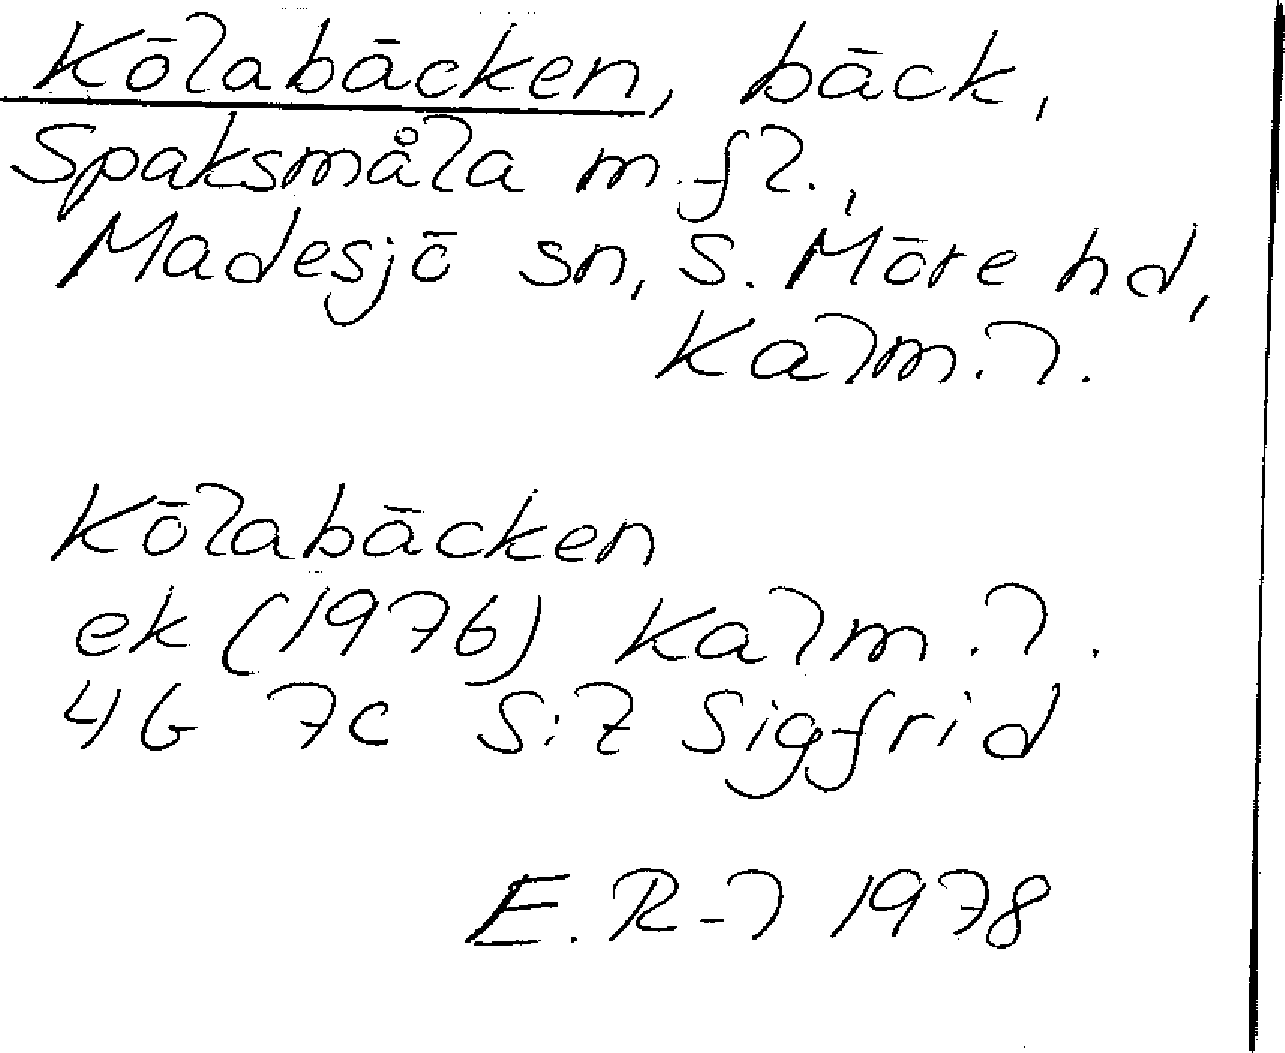 Kölabäcken, bäck,
Spaksmåla m.fl.,
Madesjö sn, S. Möre hd,
Kalm.l.
Kölabäcken
ek (1976) Kalm.l.
4G 7c S:t Sigfrid
E. R-l 1978